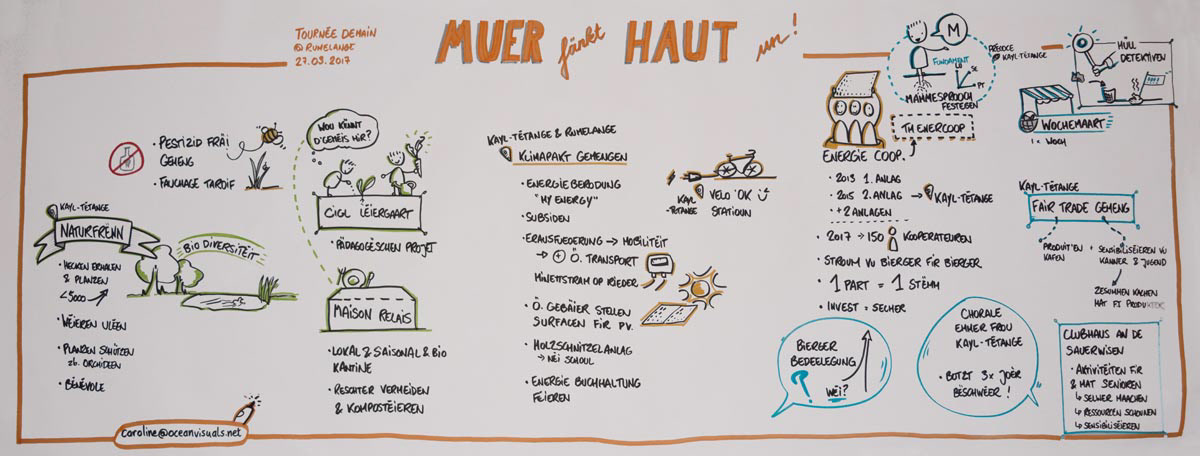 TOURNÉE DEMAIN
@ RUMELANGE
27.09.2017
MUER fänkt HAUT un!
• PESTIZID FRÄI
GEMENG
• FAUCHAGE TARDIF
KAYL-TÉTANGE
NATURFRËNN
BIODIVERSITÉIT
• HECKEN ERHALEN
& PLANZEN
<5000
• WÉIEREN ULEËN
• PLANZEN SCHÜTZEN
zb. ORCHIDEEN
• BÉNÉVOLE
caroline@oceanvisuals.net
WOU KËNNT
D'GEMÉIS HIR?
CIGL LÉIERGAART
• PÄDAGOGËSCHEN PROJET
MAISON RELAIS
• LOKAL & SAISONAL & BIO
KANTINE
• RESCHTER VERMEIDEN
& KOMPOSTÉIEREN
KAYL-TÉTANGE & RUMELANGE
KLIMAPAKT GEMENGEN
• ENERGIEBERODUNG
"MY ENERGY"
• SUBSIDEN
• ERAUSFUEDERUNG → MOBILITÉIT
→ + Ö. TRANSPORT
MINETTSTRAM OP RIEDER
• Ö. GEBAIER STELLEN
SURFACEN FIR PV.
• HOLZSCHNITZELANLAG
→ NEI SCHOUL
• ENERGIE BUCHHALTUNG
FÉIEREN
KAYL
-TÉTANGE
VELO 'OK
STATIOUN
ENERGIE COOP.
TM ENERCOOP
• 2013 1. ANLAG
• 2015 2. ANLAG → KAYL-TÉTANGE
• +2 ANLAGEN
• 2017 → 150 KOOPERATEUREN
• STROUM VU BIERGER FIR BIERGER
• 1 PART = 1 STËMM
• INVEST = SECHER
BIERGER
BEDEELEGUNG
? WÉI?
M
FUNDAMENT
LU
SE
PT
MAMMESPROOCH
FESTEGEN
PRÉCOCE
@ KAYL-TÉTANGE
HÜLL
DETEKTIVEN
WOCHEMAART
1 x WOCH
KAYL-TÉTANGE
FAIR TRADE GEMENG
PRODUITEN
KAFEN
+ SENSIBILISÉIEREN VU
KANNER & JUGEND
ZESUMMEN KACHEN
MAT FT PRODUKTEN
CHORALE
EMMER FROU
KAYL-TÉTANGE
• BOTZT 3x JOER
BËSCHWEER!
CLUBHAUS AN DE
SAUERWISEN
• AKTIVITÉITEN FIR
& MAT SENIOREN
↳ SELWER MAACHEN
↳ RESSOURCEN SCHOUNEN
↳ SENSIBILISÉIEREN